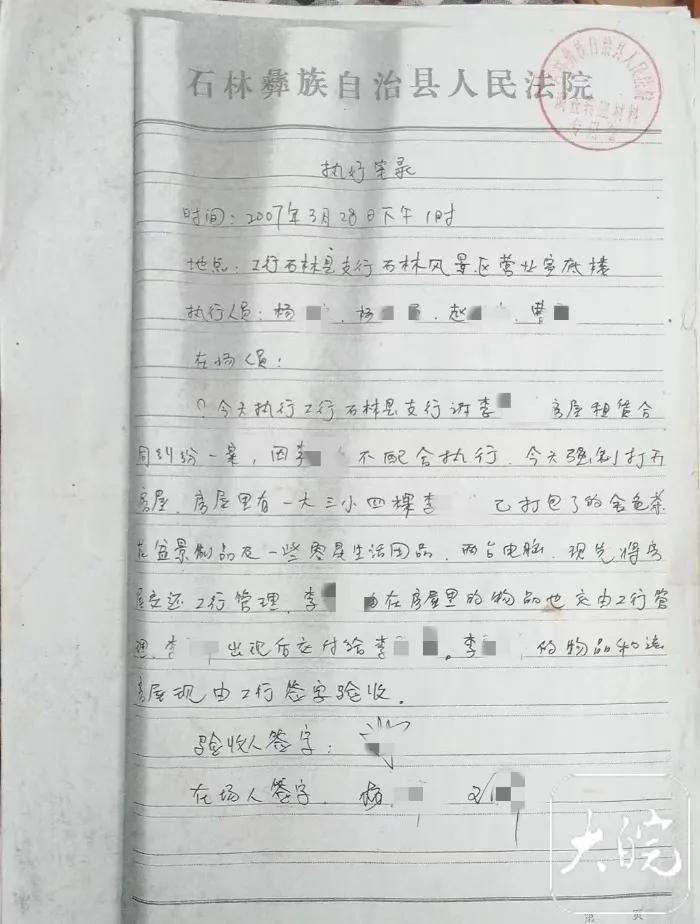 石林彝族自治县人民法院
彝族自治县人民法院
专用章
执行笔录
时间：2007年3月28日下午1时
地点：工行石林县支行石林风景区营业室底楼
执行人员：杨 、杨 、赵 、曹
在场人员：
？今天执行工行石林县支行诉李 房屋租赁合
同纠纷一案，因李 不配合执行，今天强制打开
房屋，房屋里有一大三小四棵李 已打包了的金色茶
花盆景制品及一些零星生活用品，两台电脑，现先将房
屋交还工行管理，李 在房屋里的物品也交由工行管
理，李 出现后交付给李 。李 的物品和该
房屋现由工行签字验收。
验收人签字：
在场人签字．杨
大皖
第 页